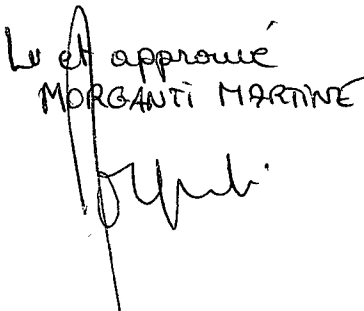 Lu et approuvé
MORGANTI MARTINE